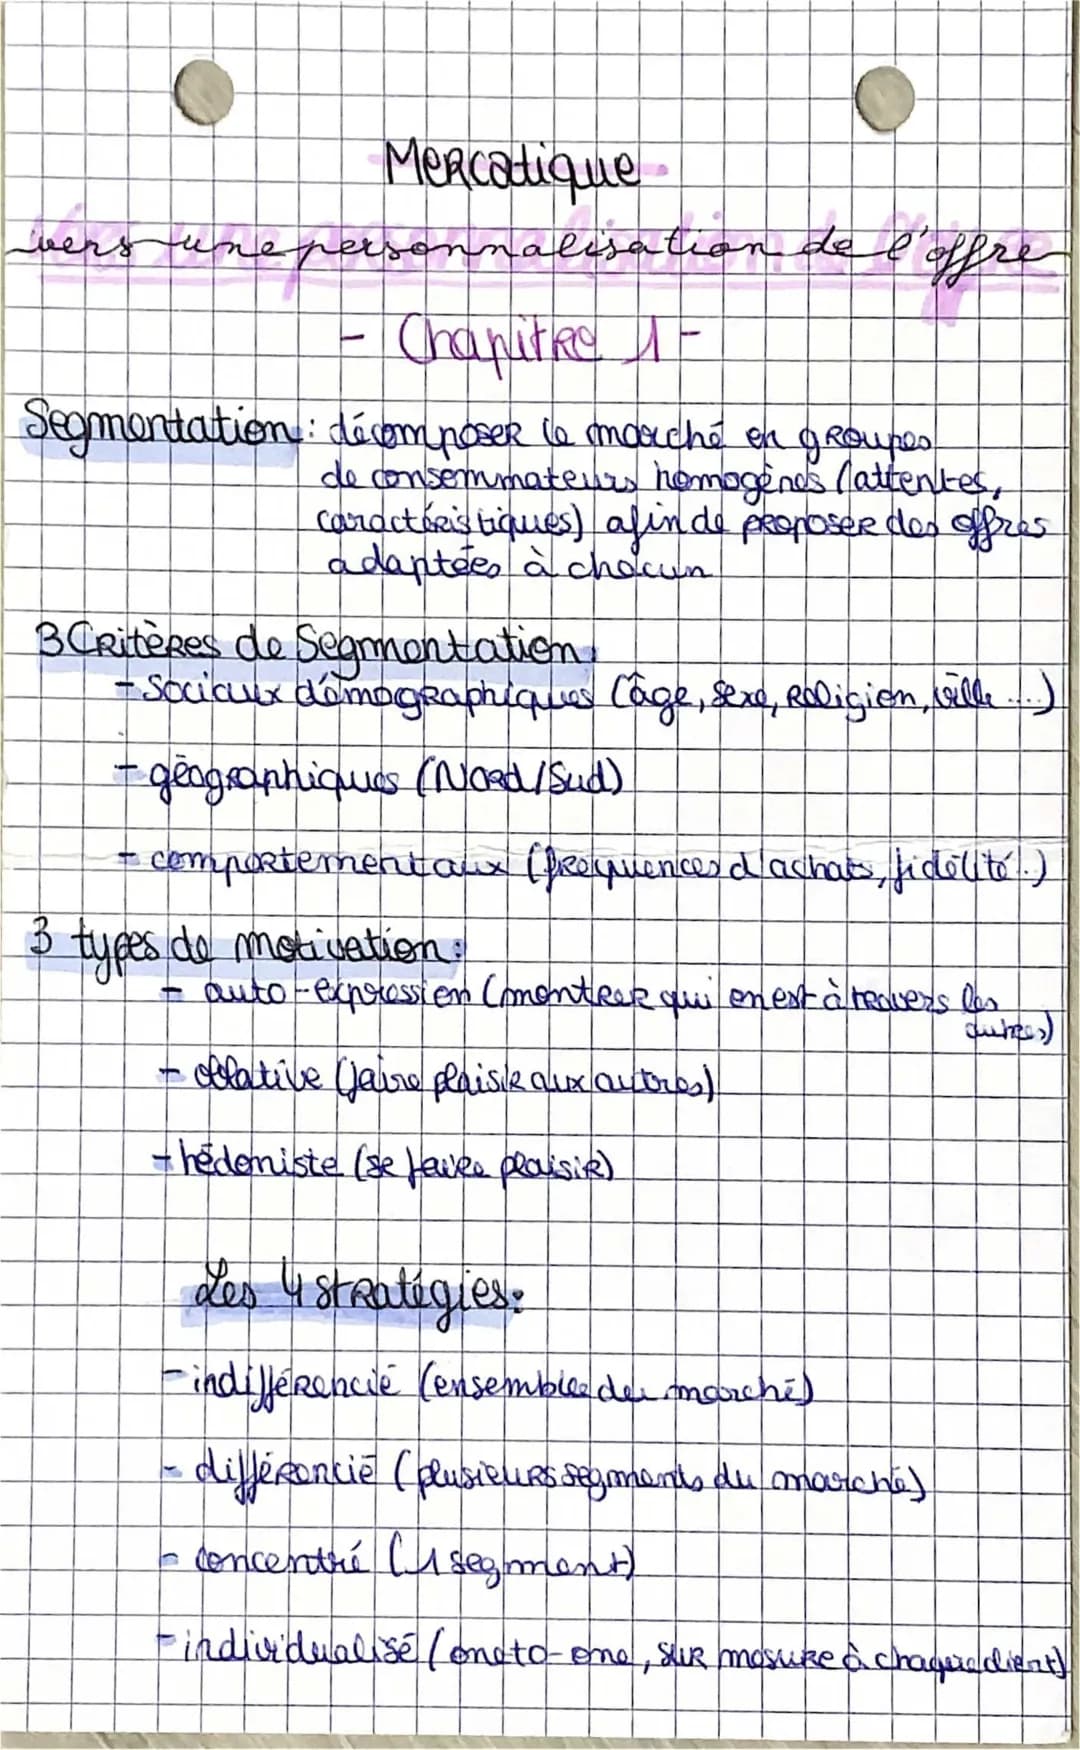 Mercatique
vers une personnalisation de l'offre
- Chapitre 1 -
Segmentation : décomposer le marché en groupes
de consommateurs homogènes (attentes,
caractéristiques) afin de proposer des offres
adaptées à chacun
3 Critères de Segmentation :
- Sociaux démographiques (âge, sexe, Religion, ville ...)
- géographiques (Nord/Sud)
- comportementaux (fréquences d'achats, fidélité..)
3 types de motivation :
- auto-expression (montrer qui on est à travers les
autres)
- oblative (faire plaisir aux autres)
- hédoniste (se faire plaisir)
Les 4 stratégies :
- indifférencié (ensembles du marché)
- différencié (plusieurs segments du marché)
- concentré (1 segment)
- individualisé (one to-one, sur mesure à chaque client)